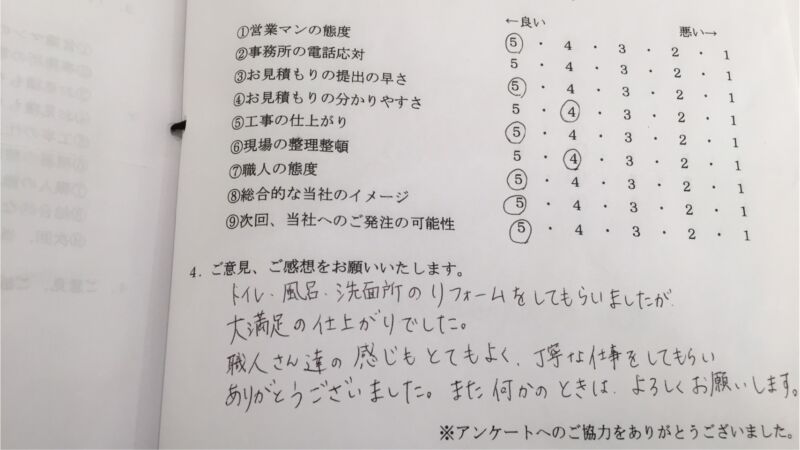 ←良い
悪い→
①営業マンの態度 5・4・3・2・1
②事務所の電話応対 5・4・3・2・1
③お見積もりの提出の早さ 5・4・3・2・1
④お見積もりの分かりやすさ 5・4・3・2・1
⑤工事の仕上がり 5・4・3・2・1
⑥現場の整理整頓 5・4・3・2・1
⑦職人の態度 5・4・3・2・1
⑧総合的な当社のイメージ 5・4・3・2・1
⑨次回、当社へのご発注の可能性 5・4・3・2・1
4．ご意見、ご感想をお願いいたします。
トイレ・風呂・洗面所のリフォームをしてもらいましたが
大満足の仕上がりでした。
職人さん達の感じもとてもよく、丁寧な仕事をしてもらい
ありがとうございました。また何かのときは、よろしくお願いします。
※アンケートへのご協力をありがとうございました。